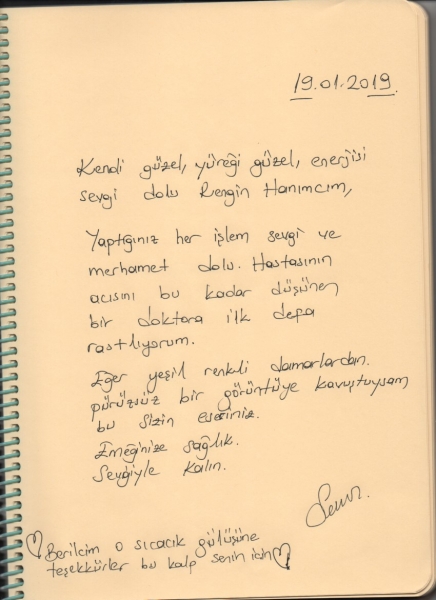 19.01.2019
Kendi güzel, yüreği güzel, enerjisi
sevgi dolu Rengin Hanımcım,
Yaptığınız her işlem sevgi ve
merhamet dolu. Hastasının
acısını bu kadar düşünen
bir doktora ilk defa
rastlıyorum.
Eğer yeşil renkli damarlardan
pürüzsüz bir görüntüye kavuştuysam
bu sizin eseriniz.
Emeğinize sağlık.
Sevgiyle kalın.
Berilcim o sıcacık gülüşüne
teşekkürler bu kalp senin için